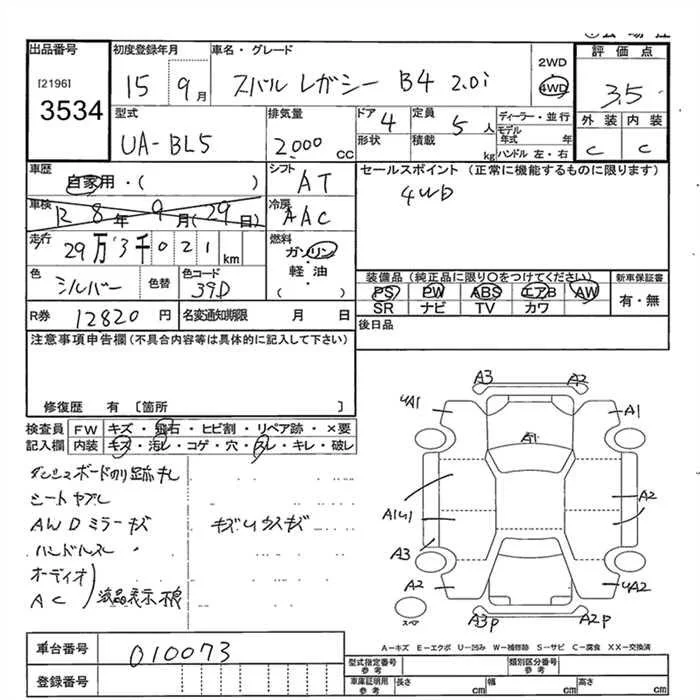 出品番号 初度登録年月 車名・グレード 評価点
[2196] 3534
15 9月 スバル レガシー B4 2.0i
2WD
4WD
3.5
型式 排気量 ドア 4 定員 5人 ディーラー・並行 外装 内装
UA-BL5 2,000 CC 形状 積載 kg モデル年式 年 ハンドル 左・右 C C
車歴 自家用・( ) シフト AT セールスポイント (正常に機能するものに限ります)
4WD
車検 12 8年 9月(29日) 冷房 AAC
走行 29万3千021km 燃料 ガソリン・軽油 ( )
色 シルバー 色替 色コード 39D
装備品(純正品に限り〇をつけてください) 新車保証書
PS PW ABS エアB AW 有・無
SR ナビ TV カワ
R券 12820円 名変通知期限 月 日 後日品
注意事項申告欄(不具合内容等は具体的に記入して下さい)
修復歴 有 〔箇所 〕
検査員記入欄 FW キズ・飛石・ヒビ割・リペア跡・×要
内装 キズ・汚レ・コゲ・穴・スレ・キレ・破レ
シート ヤブレ
AWD ミラーキズ
ハンドルスレ
オーディオ
AC 液晶表示不良
A3 A2
A1 A1
A1
A2
A3
A2 A2
スペア
A3P A2P
A-キズ E-エクボ U-凹み W-補修跡 S-サビ C-腐食 XX-交換済
車台番号 010073
登録番号
型式指定番号 参考 類別区分番号 参考
車庫証明用 参考 長さ cm 幅 cm 高さ cm